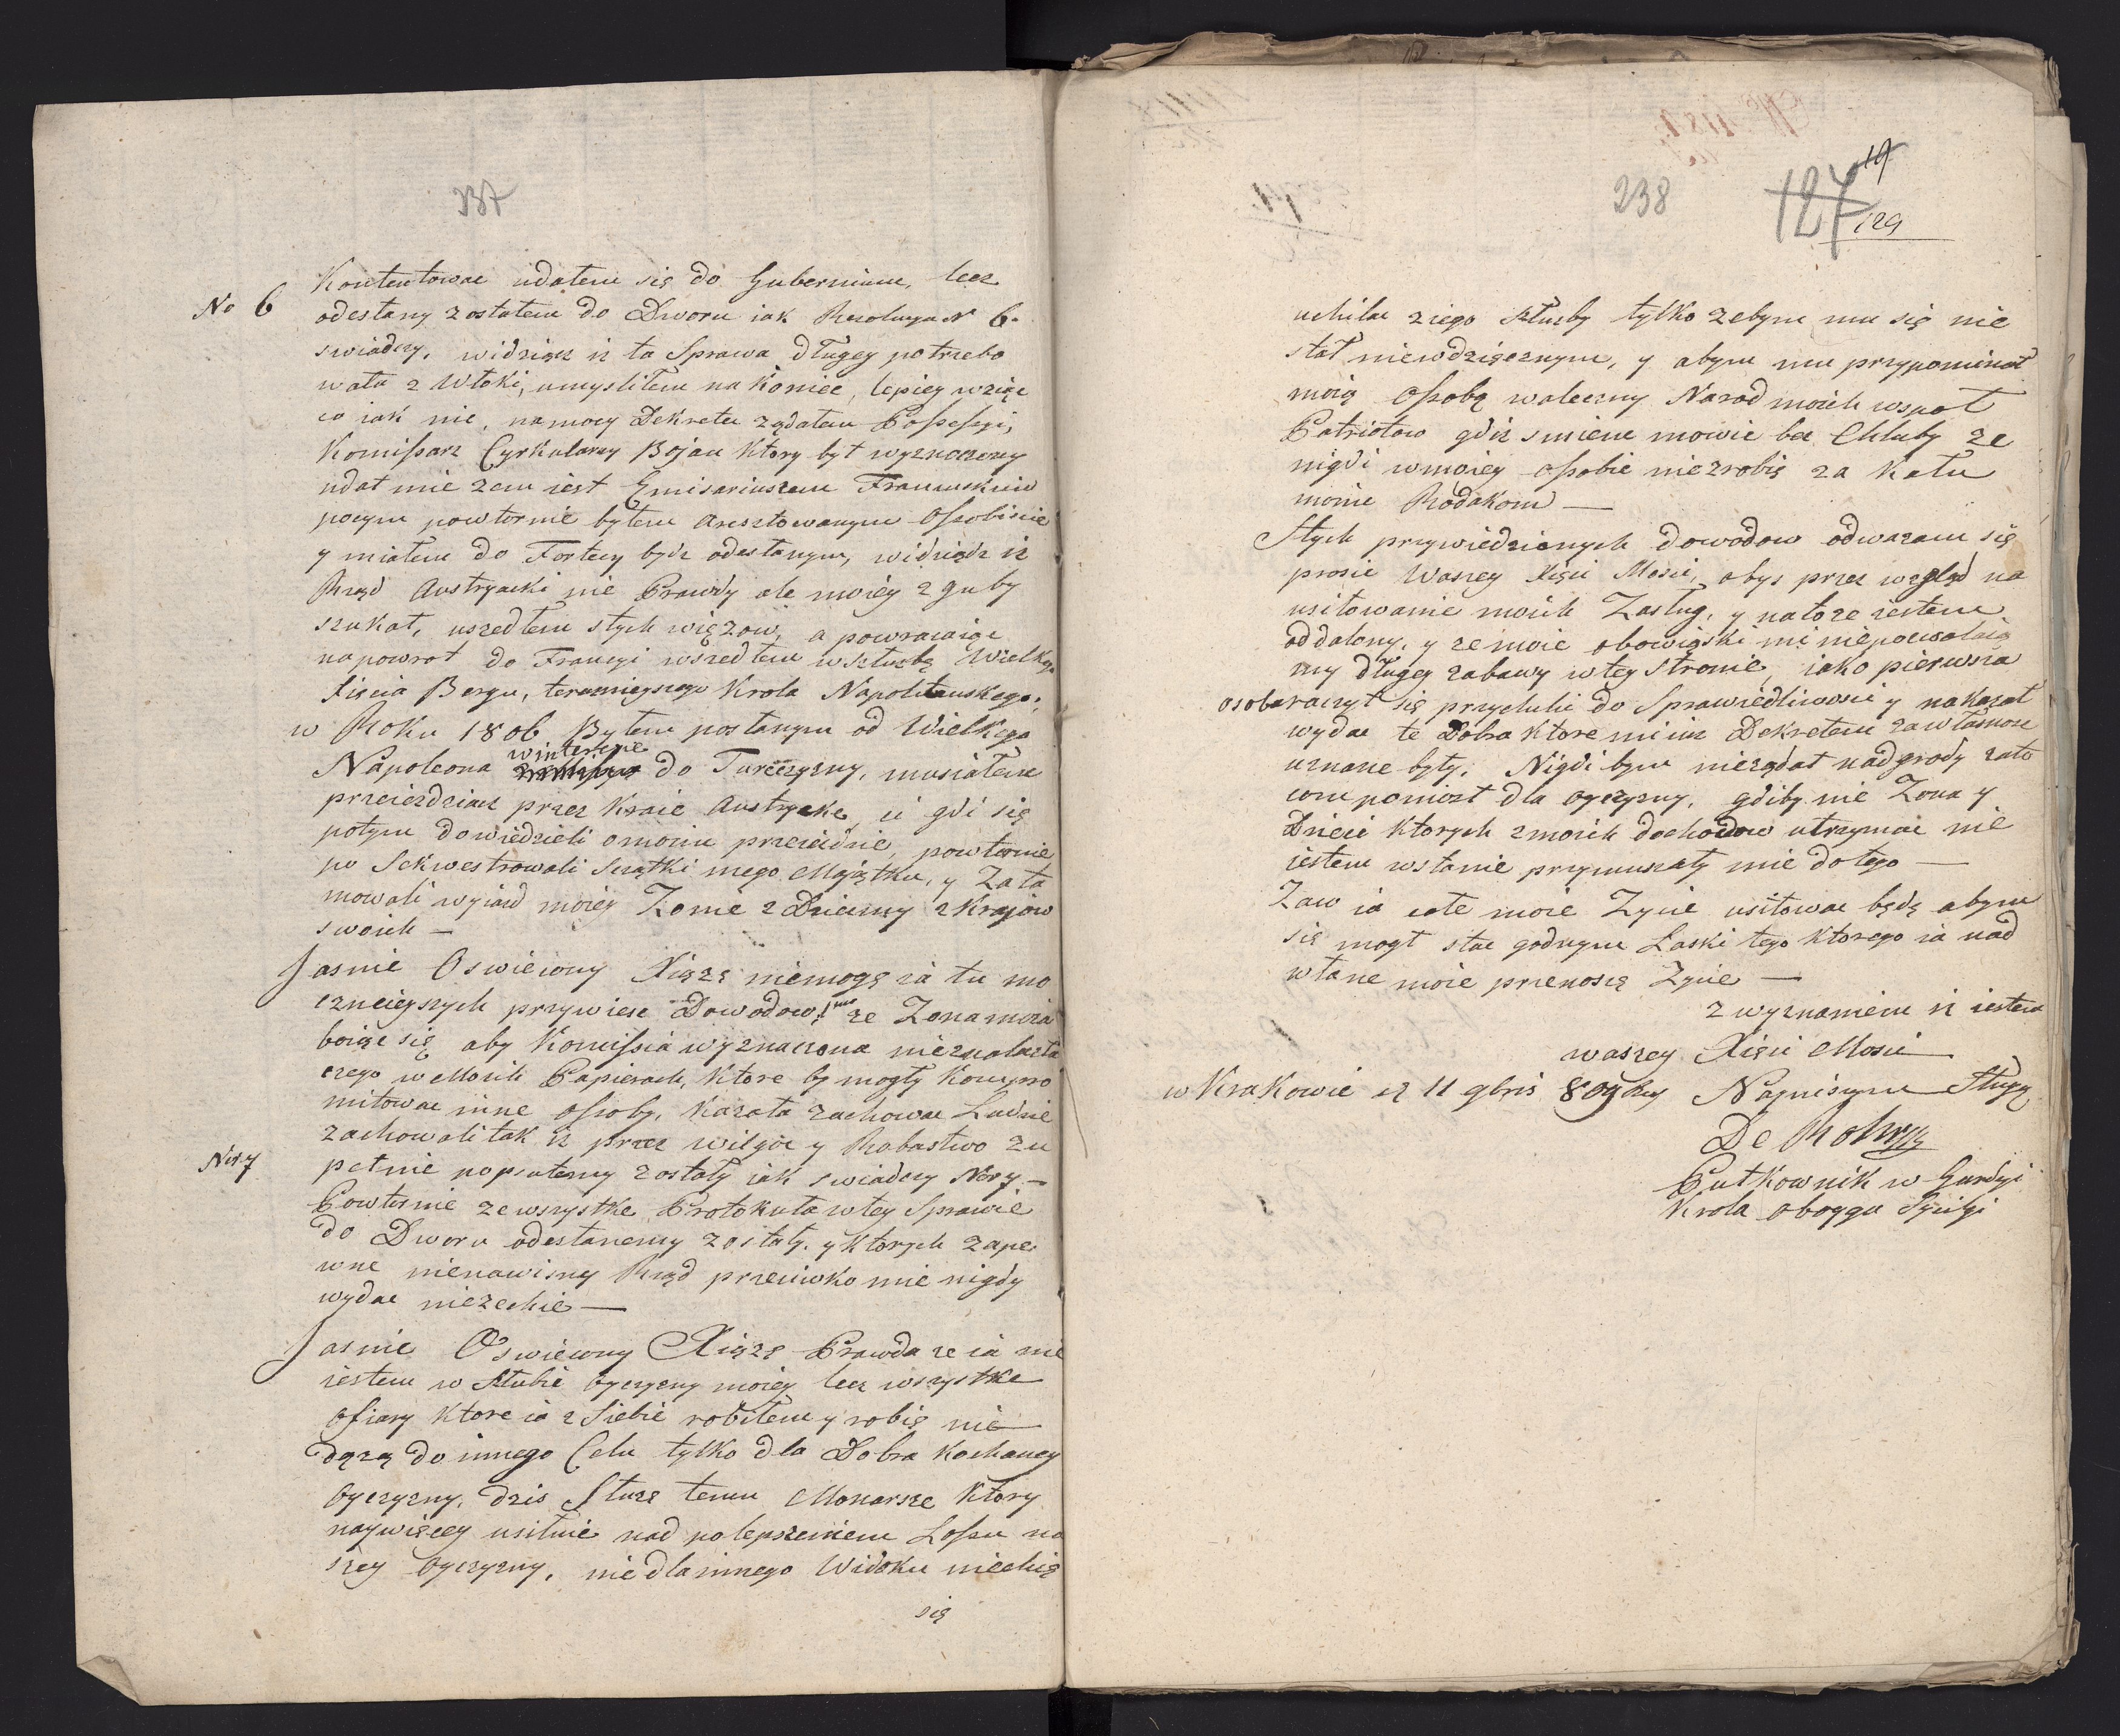 237
No 6
Kontentowac udałem się do Gubernium, lecz
odesłany zostałem do Dworu iak Rezolucya N 6.
swiadczy, widziąc iz ta Sprawa długey potrzebo
wała z Włoki, umysliłem na koniec, lepiey wziąc
co iak nic, na mocy Dekretu ządałem Possessyi,
Komissarz Cyrkularny Bojan Ktory był wyznaczony
udał mie zem iest Emisariuszem Francuskim
poczym powtornie byłem aresztowanym Osobiscie
y miałem do Fortecy bydz odesłanym, widziądz iz
Rząd Austryacki nie Prawdy ale moiey zguby
szukał, uszedłem s tych więzow, a powracaiąc
napowrot do Francyi wszedłem w służbę Wielkego
Xięcia Bergu, teraznieyszego Krola Napolitanskego,
w Roku 1806 Byłem posłanym od Wielkego
winteresie
Napoleona do Turczyzny, musiałem
przeiezdziac przez Kraie Austryacke, ii gdi się
potym dowiedzieli o moim przeiezdzie, powtornie
po Sekwestrowali Sczątki mego Maiątku, y Zata
mowali wyiazd moiey Zonie z Dziecmy z Krajow
swoich —
Jasnie Oswiecony Xiąze niemogę ia tu mo
cznieyszych przywiesc Dowodow! ze Zona moia
boiąc się aby Komissia wyznaczona nieznalazła
czego w Moich Papierach, Ktore by mogły Kompro
mitowac inne Osoby, Kazała zachowac Ludzie
zachowali tak iz przez wilgoc y Robastwo zu
Nro 7
pełnie popsutemy zostały iak swiadczy Nro 7 —
Powtornie ze wszystke Protokuła w tey Sprawie
do Dworu odesłanemy zostały. y Ktorych zape
wne nienawisny Rząd przeciwko mie nigdy
wydac niezechie —
Jasnie Oswiecony Xiąze Prawda ze ia nie
iestem w służbie Oyczyzny moiey lecz wszystke
Ofiary Ktore ia z Siebie robiłem y robię nie
dązą do innego Celu tylko dla Dobra Kochaney
Oyczyzny. dzis Służę temu Monarsze Ktory
naywięcey usilnie nad polepszeniem Lossu na
szey Oyczyzny, nie dla innego Widoku niechię
się
238
127
19
129
uchilac z iego służby tylko zebym mu się nie
stał niewdzięcznym, y abym mu przypominał
moią Osobą waleczny Narod moich wspoł
Patriotow gdiz smiem mowic bez Chluby ze
nigdi w moiey Osobie niezrobię za Kału
moim Rodakom —
Stych przywiedzionych dowodow odwazam się
prosic Waszey Xięci Mosci, abys przez wzgląd na
usiłowanie moich Zasług, y na to ze iestem
oddalony, y ze moie obowiąski mi niepozwalaią
my długey zabawy w tey stronie, iako pierwsza
osoba raczył się przychilic do Sprawiedliwosci y nakazał
wydac te Dobra Ktore mi im Dekretem za własnosc
uznane były. Nigdi bym nieządał nadgrody zato
com poniosł dla oyczyzny, gdiby nie Zona y
Dzieci Ktorych z moich dochodow utrzymac nie
iestem wstanie przymuszały mie do tego —
Zaw ia całe moie Zycie usiłowac będę abym
się mogł stac godnym Łaski tego Ktorego ia nad
własne moie przenoszę Zycie —
z wyznaniem iz iestem
waszey Xięci Mosci
w Krakowie 11 9bris 809 Najnisszym Sługą
De
Pułkownik w Gwardyi
Krola oboyga Sycilyi